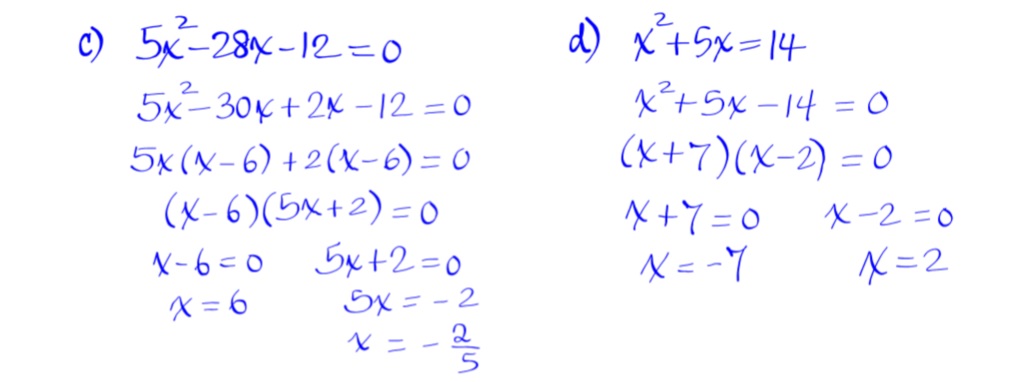 c) 5x²-28x-12=0
5x²-30x+2x-12=0
5x(x-6)+2(x-6)=0
(x-6)(5x+2)=0
x-6=0 5x+2=0
x=6 5x=-2
x=-2/5
d) x²+5x=14
x²+5x-14=0
(x+7)(x-2)=0
x+7=0 x-2=0
x=-7 x=2